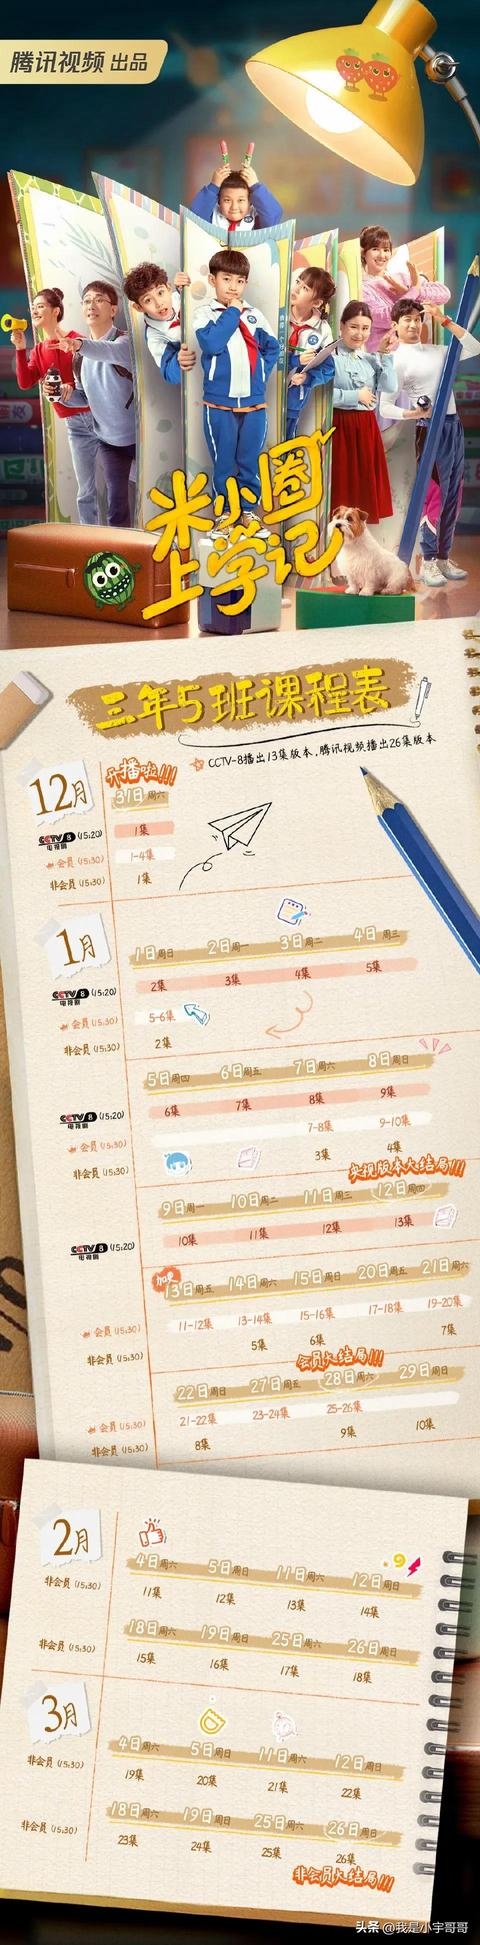 腾讯视频 出品
米小圈
上学记
三年5班课程表
CCTV-8播出13集版本，腾讯视频播出26集版本
12月
开播啦!!!
31日周六
CCTV 8 电视剧 (15:20) 1集
会员 (15:30) 1-4集
非会员 (15:30) 1集
1月
1日周日 2日周一 3日周二 4日周三
CCTV 8 电视剧 (15:20) 2集 3集 4集 5集
会员 (15:30) 5-6集
非会员 (15:30) 2集
5日周四 6日周五 7日周六 8日周日
CCTV 8 电视剧 (15:20) 6集 7集 8集 9集
会员 (15:30) 7-8集 9-10集
非会员 (15:30) 3集 4集
央视版本大结局!!!
9日周一 10日周二 11日周三 12日周四
CCTV 8 电视剧 (15:20) 10集 11集 12集 13集
加更
13日周五 14日周六 15日周日 20日周五 21日周六
会员 (15:30) 11-12集 13-14集 15-16集 17-18集 19-20集
非会员 (15:30) 5集 6集 7集
会员大结局!!!
22日周日 27日周五 28日周六 29日周日
会员 (15:30) 21-22集 23-24集 25-26集
非会员 (15:30) 8集 9集 10集
2月
4日周六 5日周日 11日周六 12日周日
非会员 (15:30) 11集 12集 13集 14集
18日周六 19日周日 25日周六 26日周日
非会员 (15:30) 15集 16集 17集 18集
3月
4日周六 5日周日 11日周六 12日周日
非会员 (15:30) 19集 20集 21集 22集
18日周六 19日周日 25日周六 26日周日
非会员 (15:30) 23集 24集 25集 26集
非会员大结局!!!
头条 @我是小宇哥哥